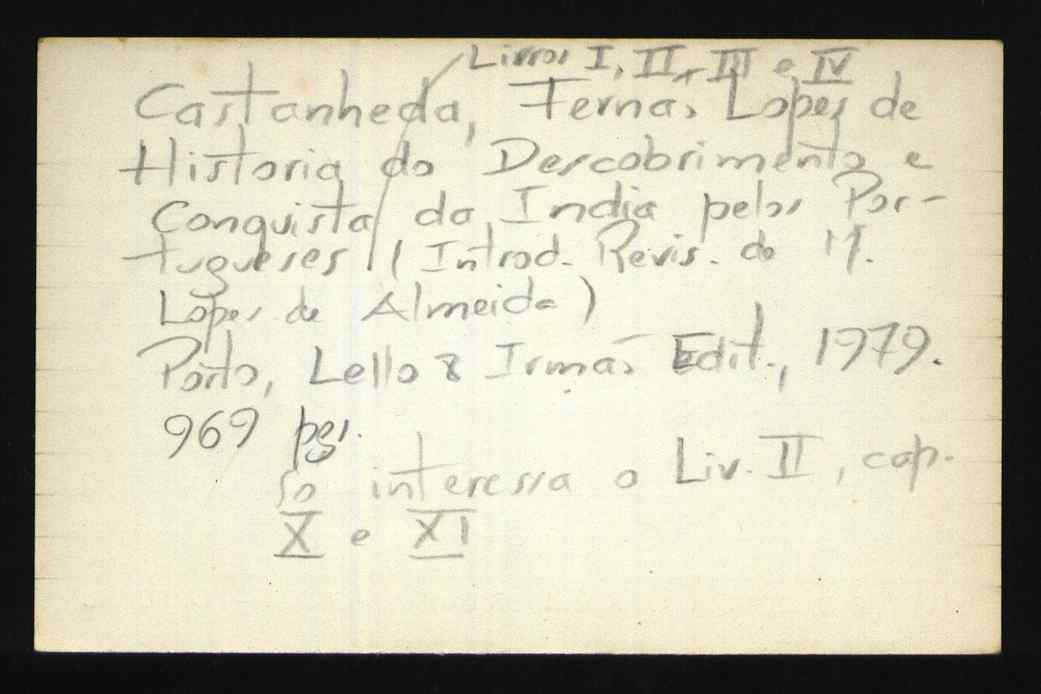 Livros I, II, III e IV
Castanheda, Fernão Lopes de
Historia do Descobrimento e
Conquista da India pelos Por-
tugueses / (Introd. Revis. de M.
Lopes de Almeida)
Porto, Lello & Irmão Edit., 1979.
969 pgs.
Só interessa o Liv. II, cap.
X e XI